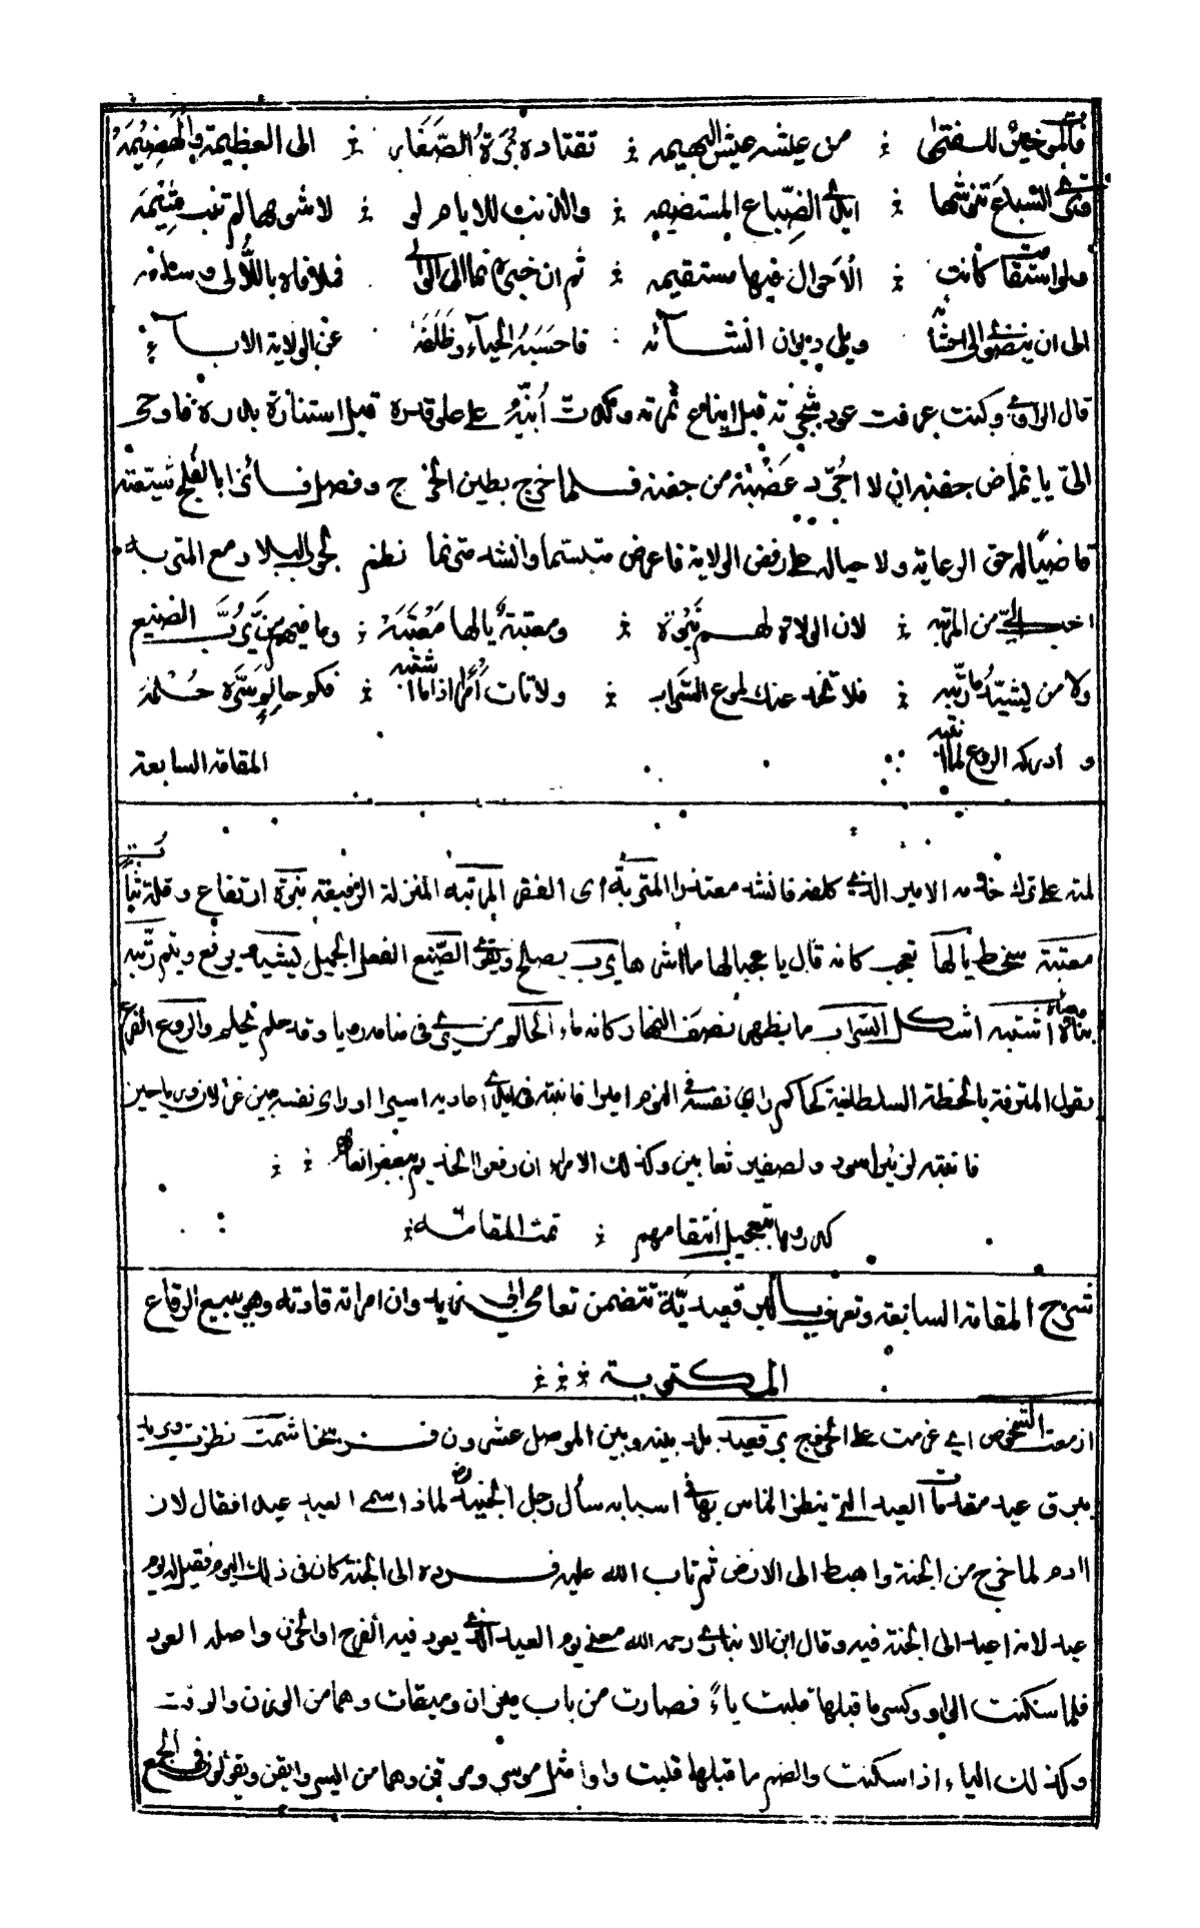 فالموت خير للفتى ؞ من عيشه عيش البهيمه ؞ تقتاده برة الصغار ؞ الى العظيمة والهضيمه
فترى السباع تنوشها ؞ ايدي الضباع المستضيمه ؞ والذنب للايام لو ؞ لا شومها لم تنب شيمه
ولو استقامت كانت ؞ الاحوال فيها مستقيمه ؞ ثم ان خبره نما الى الوالي فملا فاه باللآلى وسامه
الى ان ينضوى الى احشائه ويلى ديوان انشائه فاحسبه الحباء وظلفه عن الولاية الاباء ؞
قال الراوي وكنت عرفت عود شجرته قبل ايناع ثمرته وكدت انبه على علو قدره قبل استنارة بدره فاوحى
الي بايماض جفنه ان لا اجرد عضبه من جفنه فلما خرج بطين الخرج وفصل فائزا بالفلج شيعته
قاضيا له حق الرعاية ولاحيا له على رفض الولاية فاعرض متبسما وانشد مترنما نظم لجوب البلاد مع المتربه
احب الي من المرتبه ؞ لان الولاة لهم نبوة ؞ ومعتبة يا لها معتبه ؞ وما فيهم من يرب الصنيع
ولا من يشيد ما رتبه ؞ فلا يخدعنك لموع السراب ؞ ولا تات امرا اذا ما اشتبه ؞ فكم حالم سره حلمه
وادركه الروع لما انتبه المقامة السابعة
لمته على ترك خدمة الامير الذي كلفه فانشد معتذرا المتربة اى الفقر المرتبه المنزلة الرفيعة نبوة ارتفاع وقلة ثبات
معتبة سخط يا لها تعجب كانه قال يا عجبا لها ما اشرها يرب يصلح ويقوي الصنيع الفعل الجميل يشيد يرفع ويتم رتبه
بناه اشتبه اشكل السراب ما يظهر نصف النهار كانه ماء الحالم من يرى في منامه رويا وقد حلم يحلم والروع الفزع
يقول المترفة بالخطة السلطانية كحاكم راى نفسه في النوم اميرا فانتبه في ايدي اعاديه اسيرا او راى نفسه بين غزلان ورياحين
فانتبه لزئير اسود ولصفير ثعابين وكذلك الامراء ان رفعوا الخديم ببعض انعامهم ؞ ؞
كدروها بتعجيل انتقامهم ؞ تمت المقامة ؞
شرح المقامة السابعة وتعرف بالبرقعيدية تتضمن تعامي ابي زيد وان امراته قادته وهو يبيع الرقاع
المكتوبة ؞ ؞ ؞
ازمعت الشخوص اي عزمت على الخروج برقعيد بلد بينه وبين الموصل عشرون فرسخا شمت نظرت
برق عيد مقدمات العيد التي ينظر الناس بها في اسبابه سأل رجل الجنيد لماذا سمى العيد عيدا فقال لان
اادم لما خرج من الجنة واهبط الى الارض ثم تاب الله عليه فرده الى الجنة كان في ذلك اليوم فقيل له يوم
عيد لانه اعيد الى الجنة فيه وقال ابن الانباري رحمه الله معنى يوم العيد الذي يعود فيه الفرح او الحزن واصله العود
فلما سكنت الواو وكسر ما قبلها قلبت ياءً فصارت من باب ميزان وميقات وهما من الوزن والوقت
وكذلك الياء اذا سكنت وانضم ما قبلها قلبت واوا مثل موسر وموقن وهما من اليسر وايقن ويقولون في الجمع